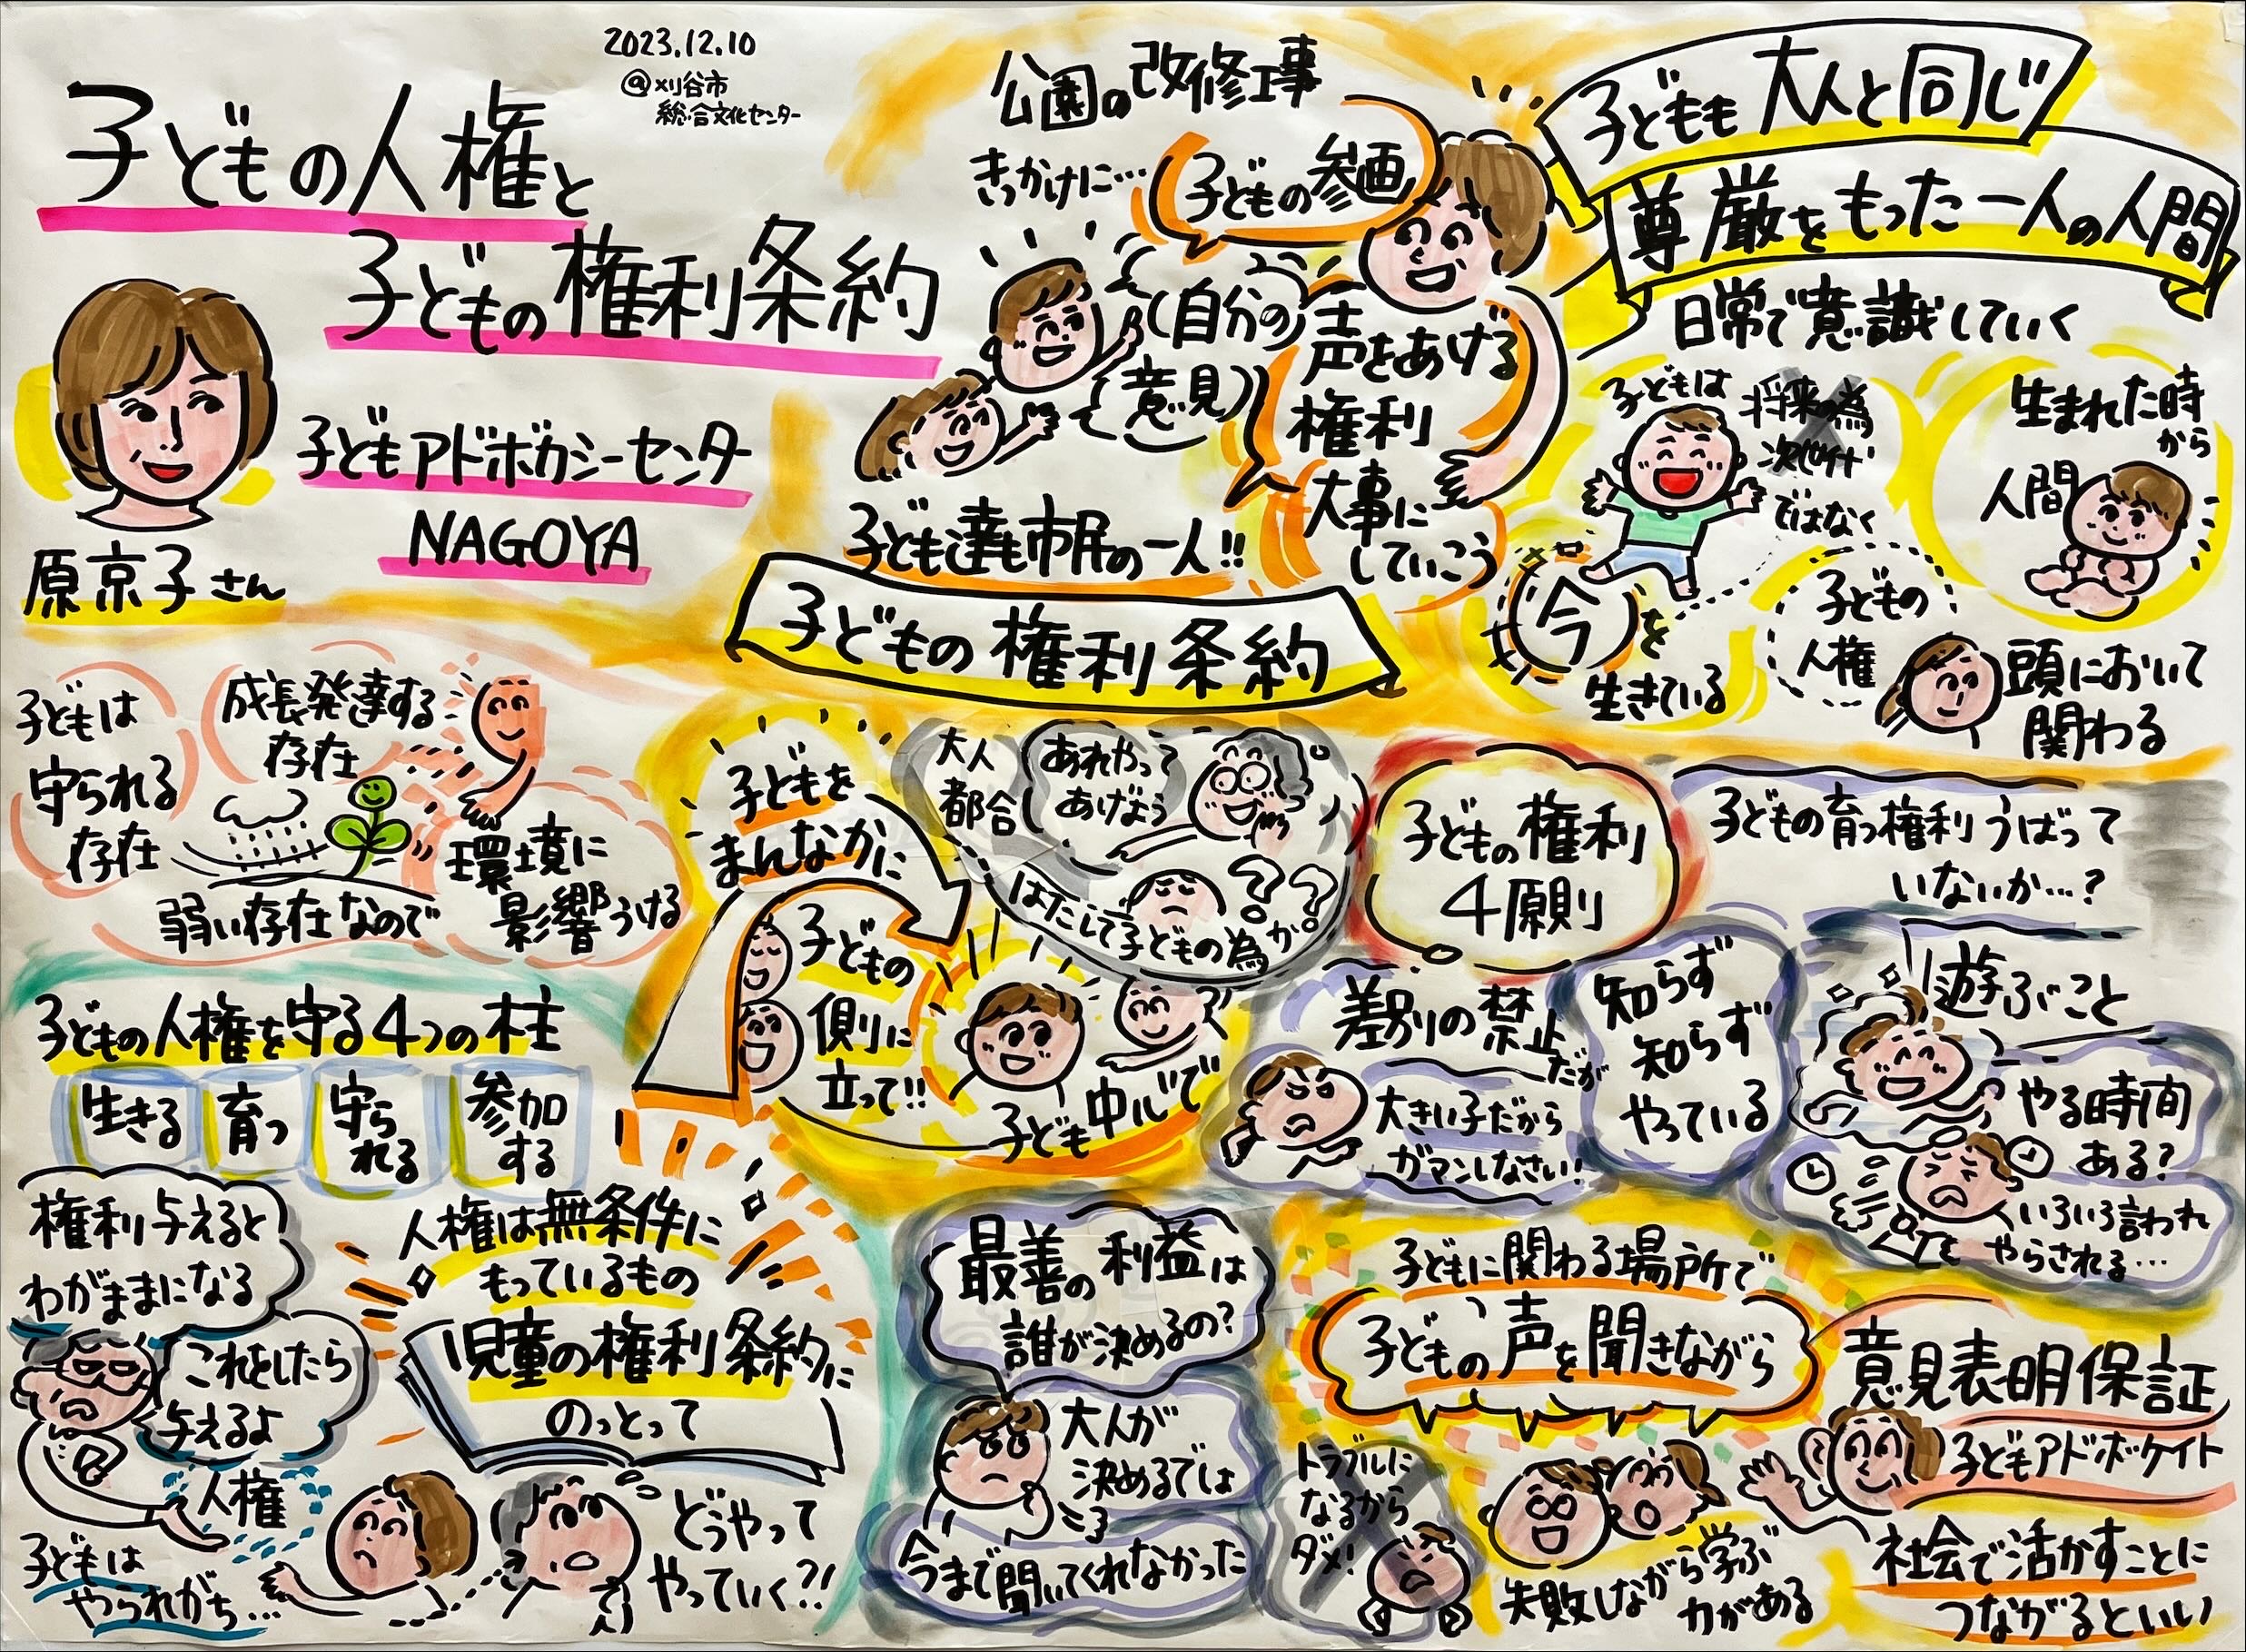 2023.12.10
@刈谷市
総合文化センター
子どもの人権と
子どもの権利条約
子どもアドボカシーセンター
NAGOYA
原京子さん
公園の改修工事
きっかけに…
子どもの参画
(自分の)
(意見)
声をあげる
権利
大事に
していこう
子ども達も市民の一人!!
子どもも大人と同じ
尊厳をもった一人の人間
日常で意識していく
子どもは
将来の為
次世代
ではなく
今を
生きている
生まれた時
から
人間
子どもの
人権
頭において
関わる
子どもの権利条約
子どもは
守られる
存在
成長発達する
存在
弱い存在なので
環境に
影響うける
子どもの人権を守る4つの柱
生きる
育つ
守ら
れる
参加
する
権利与えると
わがままになる
これをしたら
与えるよ
人権
子どもは
やられがち…
人権は無条件に
もっているもの
児童の権利条約に
のっとって
どうやって
やっていく?!
子どもを
まんなかに
子どもの
側に
立って!!
大人
都合
あれやって
あげよう
はたして子どもの為か??
子ども中心で
子どもの権利
4原則
差別の禁止
だが
大きい子だから
ガマンしなさい!
知らず
知らず
やっている
子どもの育つ権利うばって
いないか…?
遊ぶこと
やる時間
ある?
いろいろ言われ
やらされる…
最善の利益は
誰が決めるの?
大人が
決めるでは
今まで聞いてくれなかった
子どもに関わる場所で
子どもの声を聞きながら
トラブルに
なるから
ダメ!
失敗しながら学ぶ
力がある
意見表明保証
子どもアドボケイト
社会で活かすことに
つながるといい